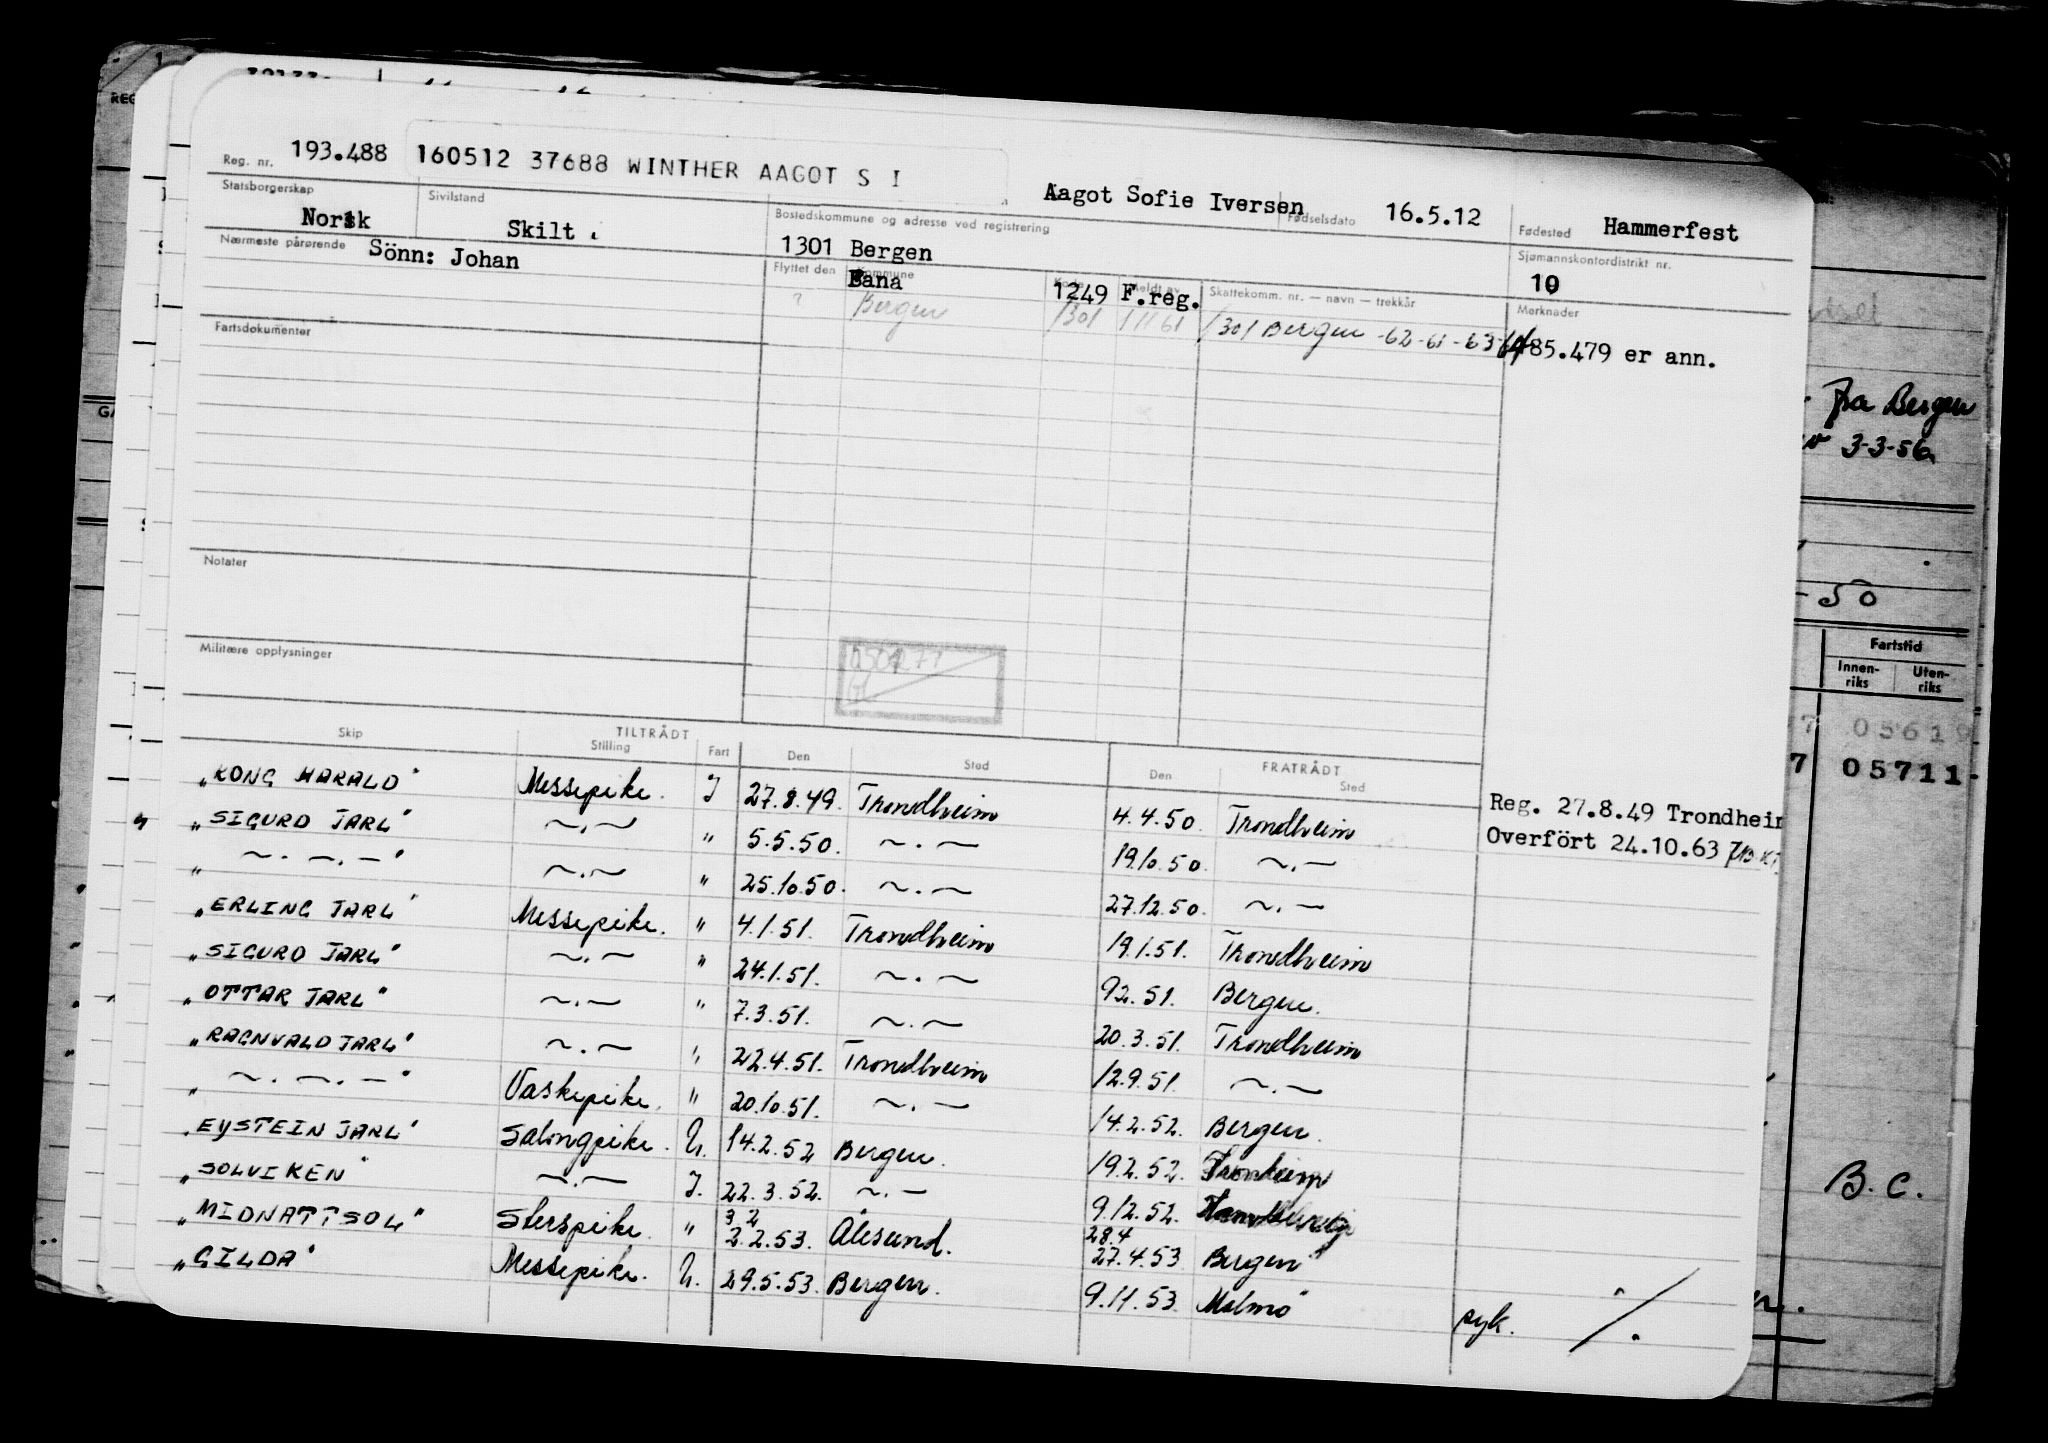 Reg. nr. 193.488 160512 37688 WINTHER AAGOT S I
Aagot Sofie Iversen Fødselsdato 16.5.12 Fødested Hammerfest
Statsborgerskap Norsk Sivilstand Skilt
Bostedskommune og adresse ved registrering 1301 Bergen
Sjømannskontordistrikt nr. 10
Nærmeste pårørende Sönn: Johan
Flyttet den Kommune Meldt av Skattekomm. nr. — navn — trekkår
Fana 1249 F.reg.
? Bergen 1301 1/1 61 1301 Bergen -62-61-63-64
Merknader
485.479 er ann.
Fartsdokumenter
Notater
Militære opplysninger
TILTRÅDT FRATRÅDT
Skip Stilling Fart Den Sted Den Sted
"KONG HARALD" Messepike. I 27.8.49. Trondheim 4.4.50. Trondheim
"SIGURD JARL" ~.~ " 5.5.50. ~.~ 19.10.50. ~.~
" ~.~.~" ~.~ " 25.10.50. ~.~ 27.12.50. ~.~
"ERLING JARL" Messepike. " 4.1.51. Trondheim 19.1.51. Trondheim
"SIGURD JARL" ~.~ " 24.1.51. ~.~ 9.2.51. Bergen.
"OTTAR JARL" ~.~ " 7.3.51. ~.~ 20.3.51. Trondheim
"RAGNVALD JARL" ~.~ " 22.4.51. Trondheim 12.9.51. ~.~
" ~.~.~" Vaskepike. " 20.10.51. ~.~ 14.2.52. Bergen.
"EYSTEIN JARL" Salongpike. U. 14.2.52 Bergen. 19.2.52.
"SOLVIKEN" ~.~ I. 22.3.52. ~.~ 9.12.52.
"MIDNATTSOL" " 3 2 2.2.53. Ålesund. 28.4 27.4.53 Bergen
"GILDA" Messepike. U. 29.5.53. Bergen. 9.11.53. Malmö syk.
Reg. 27.8.49 Trondheim
Overfört 24.10.63
fra Bergen
3-3-56
-50
Fartstid
Innenriks Utenriks
7 05619
7 05711-
B.C.